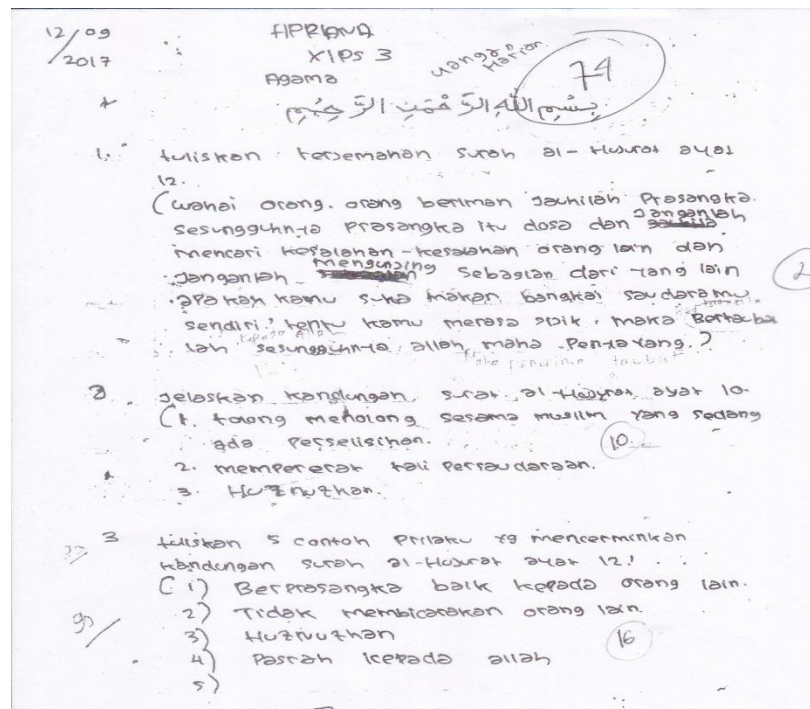 12/09
2017
APRIANA
XIPS 3
Agama
Ulangan Harian
74
بِسْمِ اللهِ الرَّحْمَنِ الرَّحِيْمِ
1. tuliskan terjemahan surah al-Hujurat ayat
12.
(wahai orang-orang beriman jauhilah Prasangka.
Sesungguhnya Prasangka itu dosa dan janganlah
mencari kesalahan-kesalahan orang lain dan
janganlah mengunjing sebagian dari yang lain
apakah kamu suka makan bangkai saudaramu
sendiri, tentu kamu merasa jijik, maka Bertaubat
lah sesungguhnya allah maha Penyayang.)
2. Jelaskan kandungan surat al-Hujurat ayat 10.
(1. tolong menolong sesama muslim yang sedang
ada Perselisihan.
10
2. mempererat tali Persaudaraan.
3. Huznuzhan.
3 tuliskan 5 contoh Prilaku yg mencerminkan
kandungan surah al-Hujurat ayat 12!
(1) Berprasangka baik kepada orang lain.
2) Tidak membicarakan orang lain.
3) Huznuzhan
16
4) Pasrah kepada allah
5)